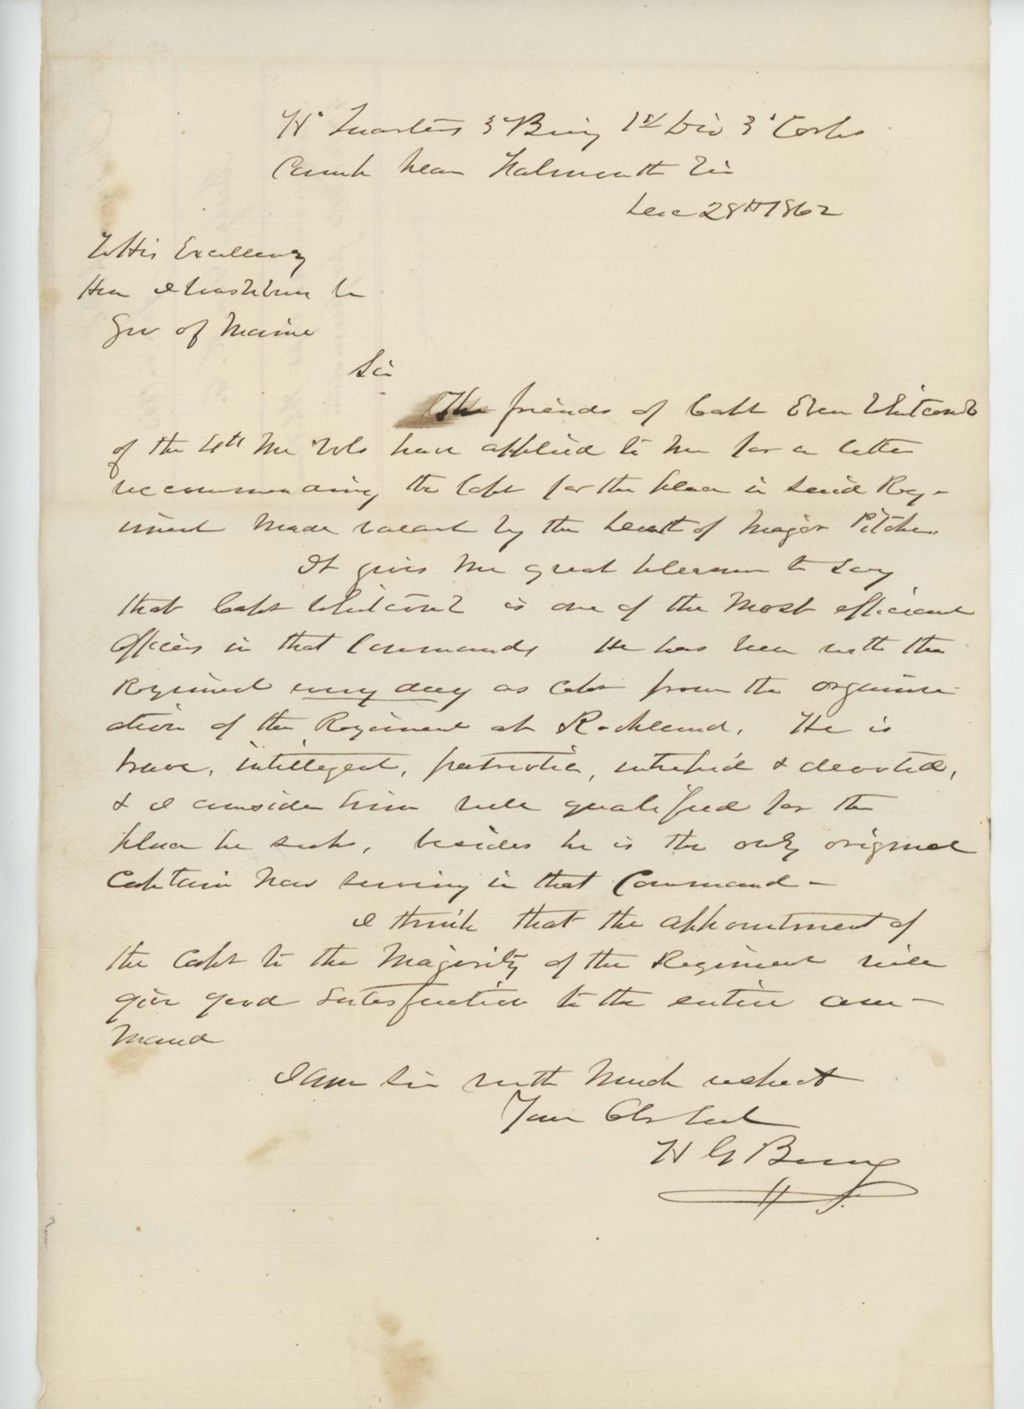 Hd Quarters 3d Brig 1st Div 3d Corps
Camp near Falmouth Va
Dec 28th 1862
To His Excellency
Hon I Washburn Jr
Gov of Maine
Sir
The friends of Capt Eben Whitcomb
of the 4th Me Vols have applied to me for a letter
recommending the Capt for the place in said Reg-
iment made vacant by the death of Major Pitcher
It gives me great pleasure to say
that Capt Whitcomb is one of the most efficient
officers in that Command, He has been with the
Regiment every day as Capt from the organiz-
ation of the Regiment at Rockland, He is
brave, intelligent, patriotic, intrepid & devoted,
& I consider him well qualified for the
place he seeks, besides he is the only original
Captain now serving in that Command -
I think that the appointment of
the Capt to the Majority of the Regiment will
give good satisfaction to the entire com-
mand
I am Sir with much respect
Your Obt Servt
H G Berry